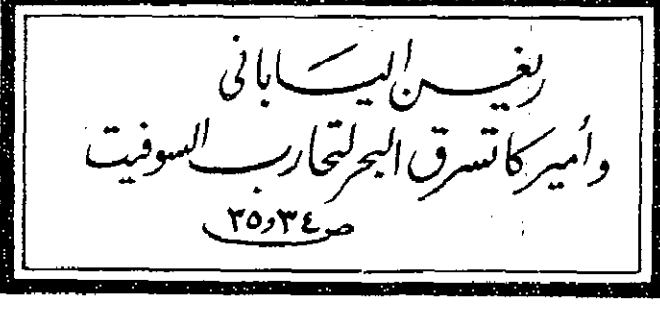 ريغن الياباني
وأميركا تسرق البحر لتحارب السوفيت
ص ٣٤ و ٣٥